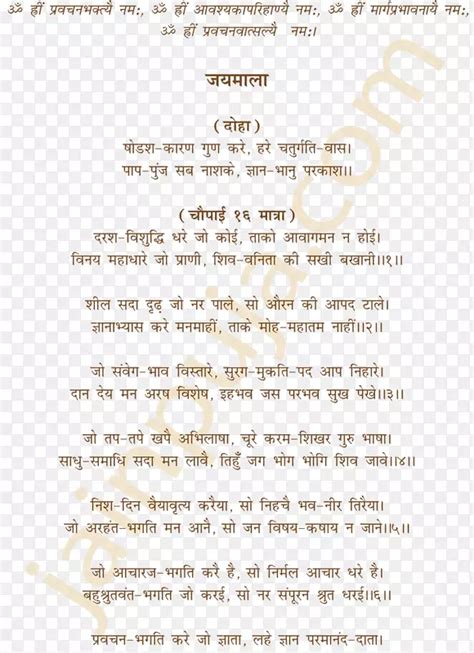 ॐ ह्रीं प्रवचनभक्त्यै नमः, ॐ ह्रीं आवश्यकापरिहाण्यै नमः, ॐ ह्रीं मार्गप्रभावनायै नमः,
ॐ ह्रीं प्रवचनवात्सल्यै नमः।
जयमाला
(दोहा)
षोडश-कारण गुण करे, हरे चतुर्गति-वास।
पाप-पुंज सब नाशके, ज्ञान-भानु परकाश।।
(चौपाई १६ मात्रा)
दरश-विशुद्धि धरे जो कोई, ताको आवागमन न होई।
विनय महाधारे जो प्राणी, शिव-वनिता की सखी बखानी।।१।।
शील सदा दृढ़ जो नर पाले, सो औरन की आपद टाले।
ज्ञानाभ्यास करे मनमाहीं, ताके मोह-महातम नाहीं।।२।।
जो संवेग-भाव विस्तारे, सुरग-मुकति-पद आप निहारे।
दान देय मन अरष विशेष, इहभव जस परभव सुख पेखे।।३।।
जो तप-तपे खपै अभिलाषा, चूरे करम-शिखर गुरु भाषा।
साधु-समाधि सदा मन लावै, तिहुँ जग भोग भोगि शिव जावे।।४।।
निश-दिन वैयावृत्य करैया, सो निहचै भव-नीर तिरैया।
जो अरहंत-भगति मन आनै, सो जन विषय-कषाय न जाने।।५।।
जो आचारज-भगति करै है, सो निर्मल आचार धरे है।
बहुश्रुतवंत-भगति जो करई, सो नर संपूरन श्रुत धरई।।६।।
प्रवचन-भगति करे जो ज्ञाता, लहे ज्ञान परमानंद-दाता।
jainpuja.com